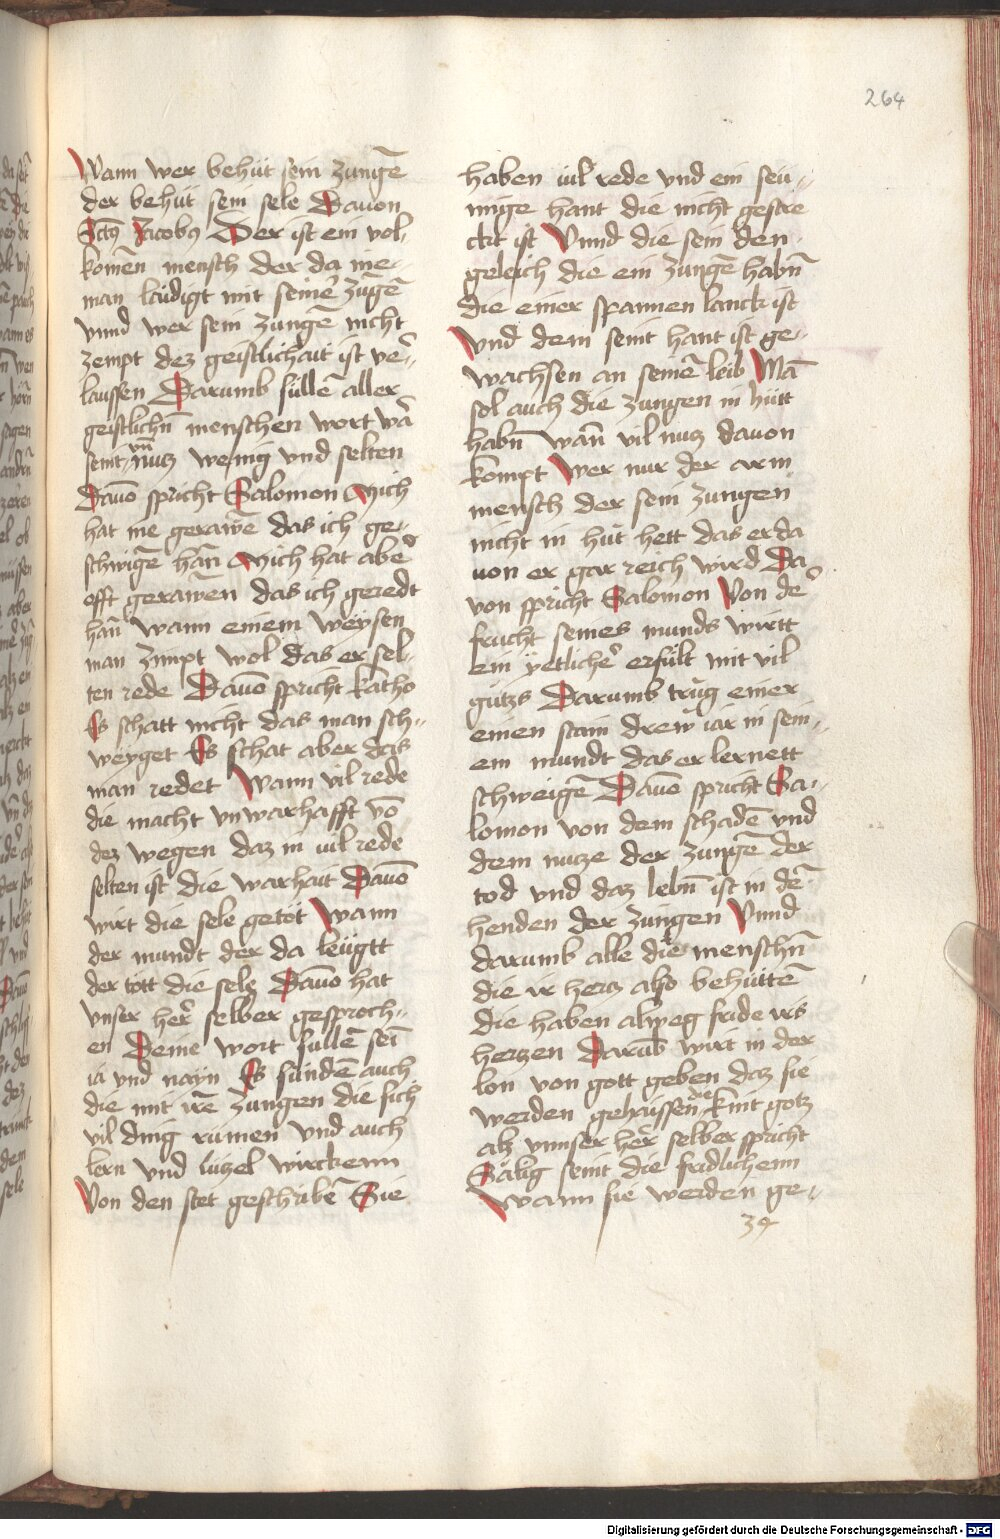 264
Wann wer behüt sein zungē
der behüt sein sele Dauon
Sctꝰ Jacobꝰ Der ist ein vol-
komēn mensch der da me-
man laidigt mit seinē zūgē
vnnd wer sein zungē nicht
zempt dez geistlichait ist ve͛-
laussen Darumb süllē aller
geistlichn̄ menschen wort wā
seint vn̄ nutz wenig vnd selten
Dauō spricht Salomon Mich
hat nie gerawē das ich ge-
schwigē han̄ Mich hat abe͛
offt gerawen das ich geredt
han̄ wann einem weysen
man zimpt wol das er sel-
ten rede Dauō spricht katho
Es schatt nicht das man sch-
weyget Es schat aber das
man redet Wann vil rede
die macht vnwarhafft vō
dez wegen daz in uil rede
selten ist die warhait Dauō
wirt die sele getöt Wann
der mundt der da leügtt
der tött die sele Dauō hat
vnser her͛ selber gesproch-
en Deine wort süllē sei͞
ia vnd nayn Es sündē auch
die mit irē zungen die sich
vil ding rümen vnd auch
lern vnd lützel wirckenn
Von den stet geschribē Sie
haben uil rede vnd ein seü-
mige hant die nicht gestre
ckt ist Vnnd die sein den-
geleich die ein zungē habn̄
die einer spannen lanck ist
Vnd dem seint hant ist ge-
wachsen an seinē leib Mā
sol auch die zungen in hütt
habn̄ wan̄ vil nutz dauon
kompt Wer nur der arm
mensch der sein zungen
nicht in hüt hett das er da
uon er gar reich wird Da
von spricht Salomon Von de͛
frucht seines munds wirtt
ein yetliche͛ erfült mit vil
gützs Darumb trüg einer
einen stain drew iar in sein-
em mundt das er lernett
schweigē Dauō spricht Sa-
lomon von dem schadē vnd
dem nutze der zungē der
tod vnd daz lebn̄ ist in de͛
henden der zungen Vnnd
darumb alle die menschn̄
die ir hertz also behüttē
die haben alweg fride irs
hertzen Darūb wirt in der
lon von gott geben daz sie
werden gehaissen die kint gotz
alz vnnser her͛ selber spricht
Sälig seint die fridlichenn
Wann sie werden ge-
34
Digitalisierung gefördert durch die Deutsche Forschungsgemeinschaft - DFG